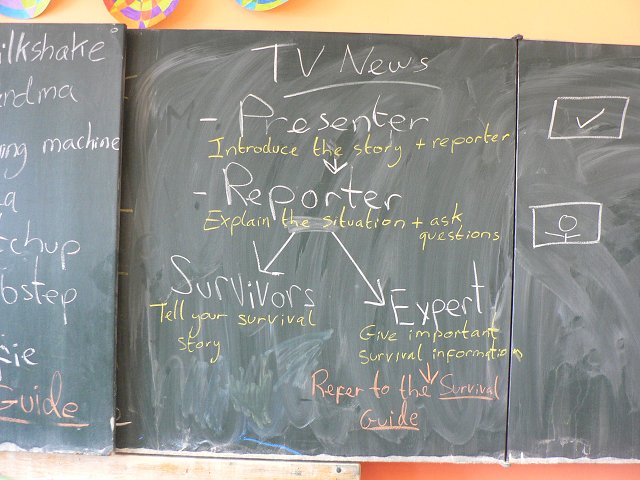 milkshake
machine
Guide
TV News
- Presenter
Introduce the story + reporter
- Reporter
Explain the situation + ask
questions
Survivors
Tell your survival
story
Expert
Give important
survival information
Refer to the Survival
Guide